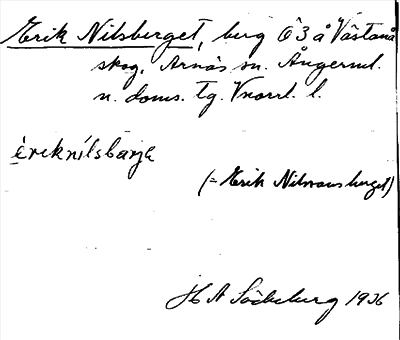 Erik Nilsberget, berg Ö 3 å Västanå
skog, Arnäs sn. Ångerml.
n. doms. tg. Vnorrl. l.
èreknílsbärje
(= Erik Nilsons berget)
H A Söderberg 1936